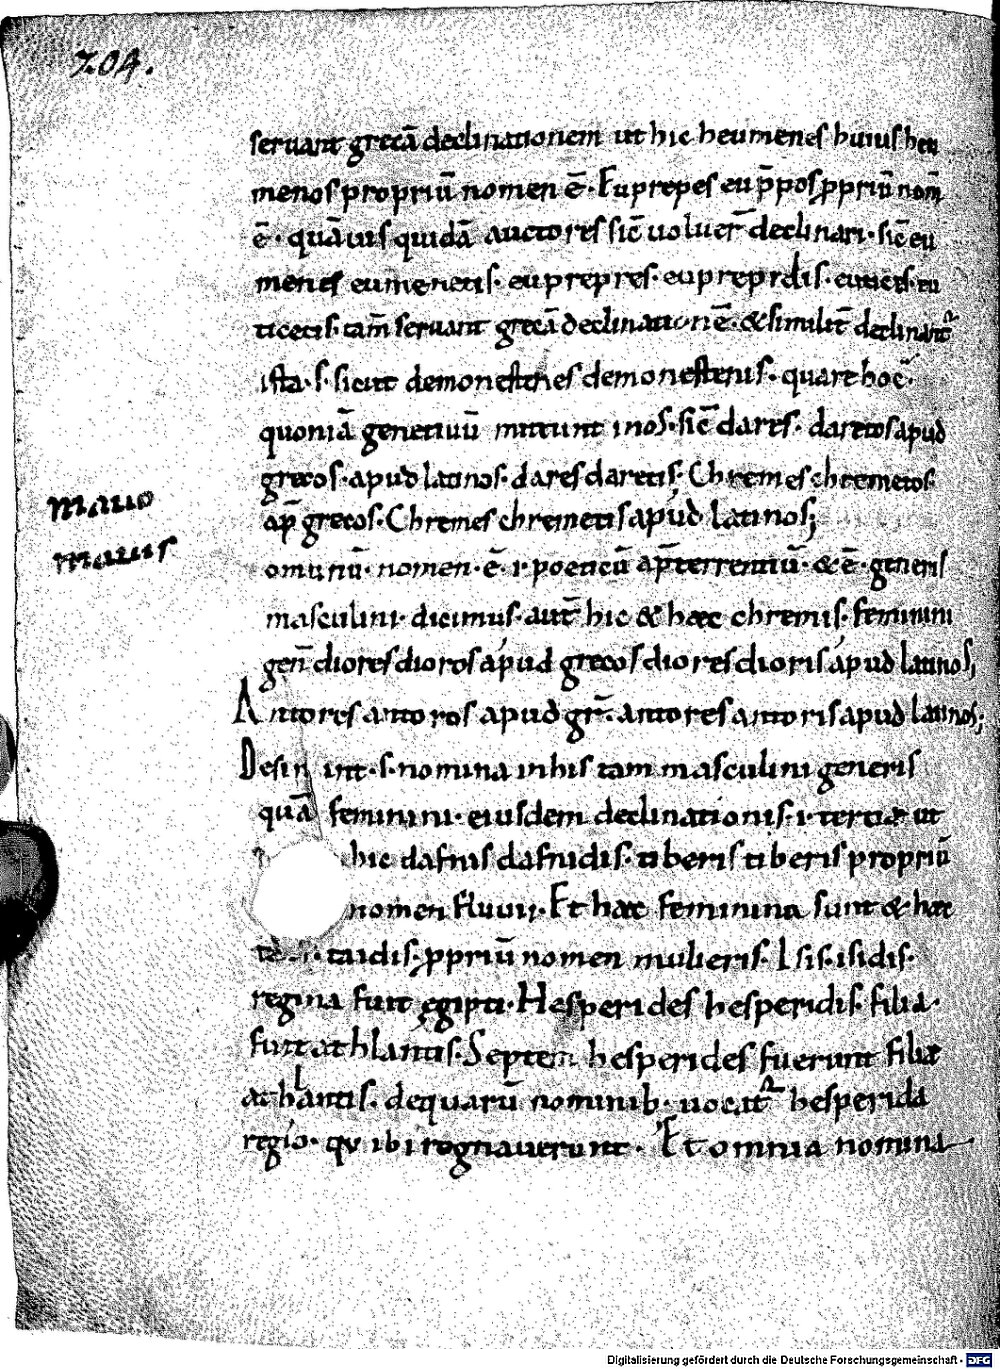 204.
seruant grecā declinationem ut hic heumenes huius heu
menos propriū nomen ē. Euprepes eup̄pos ꝓpriū nom̄
ē. quāuis quidā auctores sic̄ uoluer̄ declinari. sic̄ eu
menes eumenetis. euprepres. euprepetis. eutices. eu
ticetis. tam̄ seruant grecā declinationē. & similit̄ declinant᷑
ista. s. sicut demonestenes demonestenis. quare hoc.
quoniā genetiuū mittunt in os. sic̄ dares. daretos apud
grecos. apud latinos. dares daretis. Chremes chremetos
ap̄ grecos. Chremes chremetis apud latinos;
mauo
mauus
omunū. nomen. ē. i. poeticū ap̄ terrentiū. & ē. generis
masculini. dicimus. aut̄ hic & haec chremis. feminini
gen̄ diores dioros apud grecos diores dioris apud latinos;
Antores antoros apud gr̄. antores antoris apud latinos;
Desin int. s. nomina in his tam masculini generis
quā feminini. eiusdem declinationis. i. tertiae ut
hic dafnis dafnidis. tiberis tiberis propriū
nomen fluuii. Et haec feminina sunt & haec
taidis. ꝓpriū nomen mulieris. Isis. isidis.
regina fuit egipti. Hesperides hesperidis. filia.
fuit athlantis. Septem hesperides fuerunt filiae
athlantis. de quarū nominib. uocat᷑ hesperida
regio. qu ibi regnauerunt. Et omnia nomina
Digitalisierung gefördert durch die Deutsche Forschungsgemeinschaft - DFG